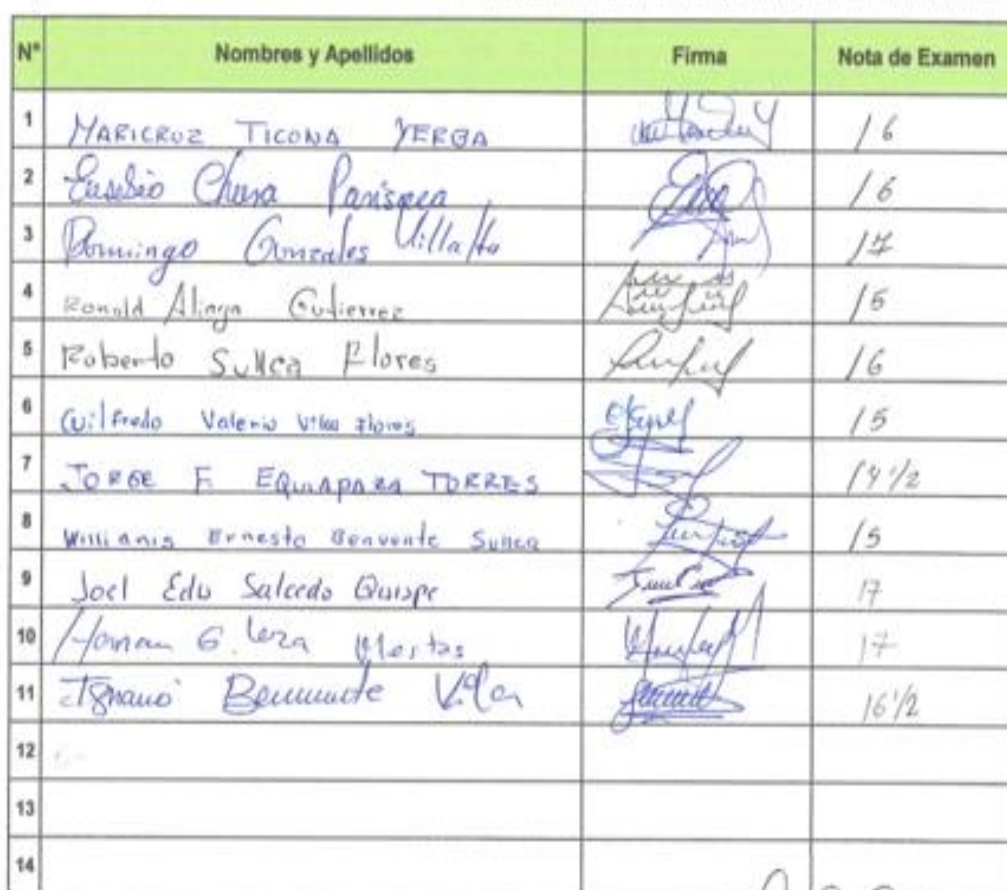 N° Nombres y Apellidos Firma Nota de Examen
1 MARICRUZ TICONA YERBA 16
2 Eusebio Chura Parisaca 16
3 Domingo Gonzales Villalta 17
4 Ronald Aliaga Gutierrez 15
5 Roberto Sullca Flores 16
6 Wilfredo Valerio Vilca Flores 15
7 JORGE F. EQUIAPAZA TORRES 14 1/2
8 Williams Ernesto Benavente Sullca 15
9 Joel Edu Salcedo Quispe 17
10 Hernan G. Mestas 17
11 Ignacio Benavente 16 1/2
12
13
14